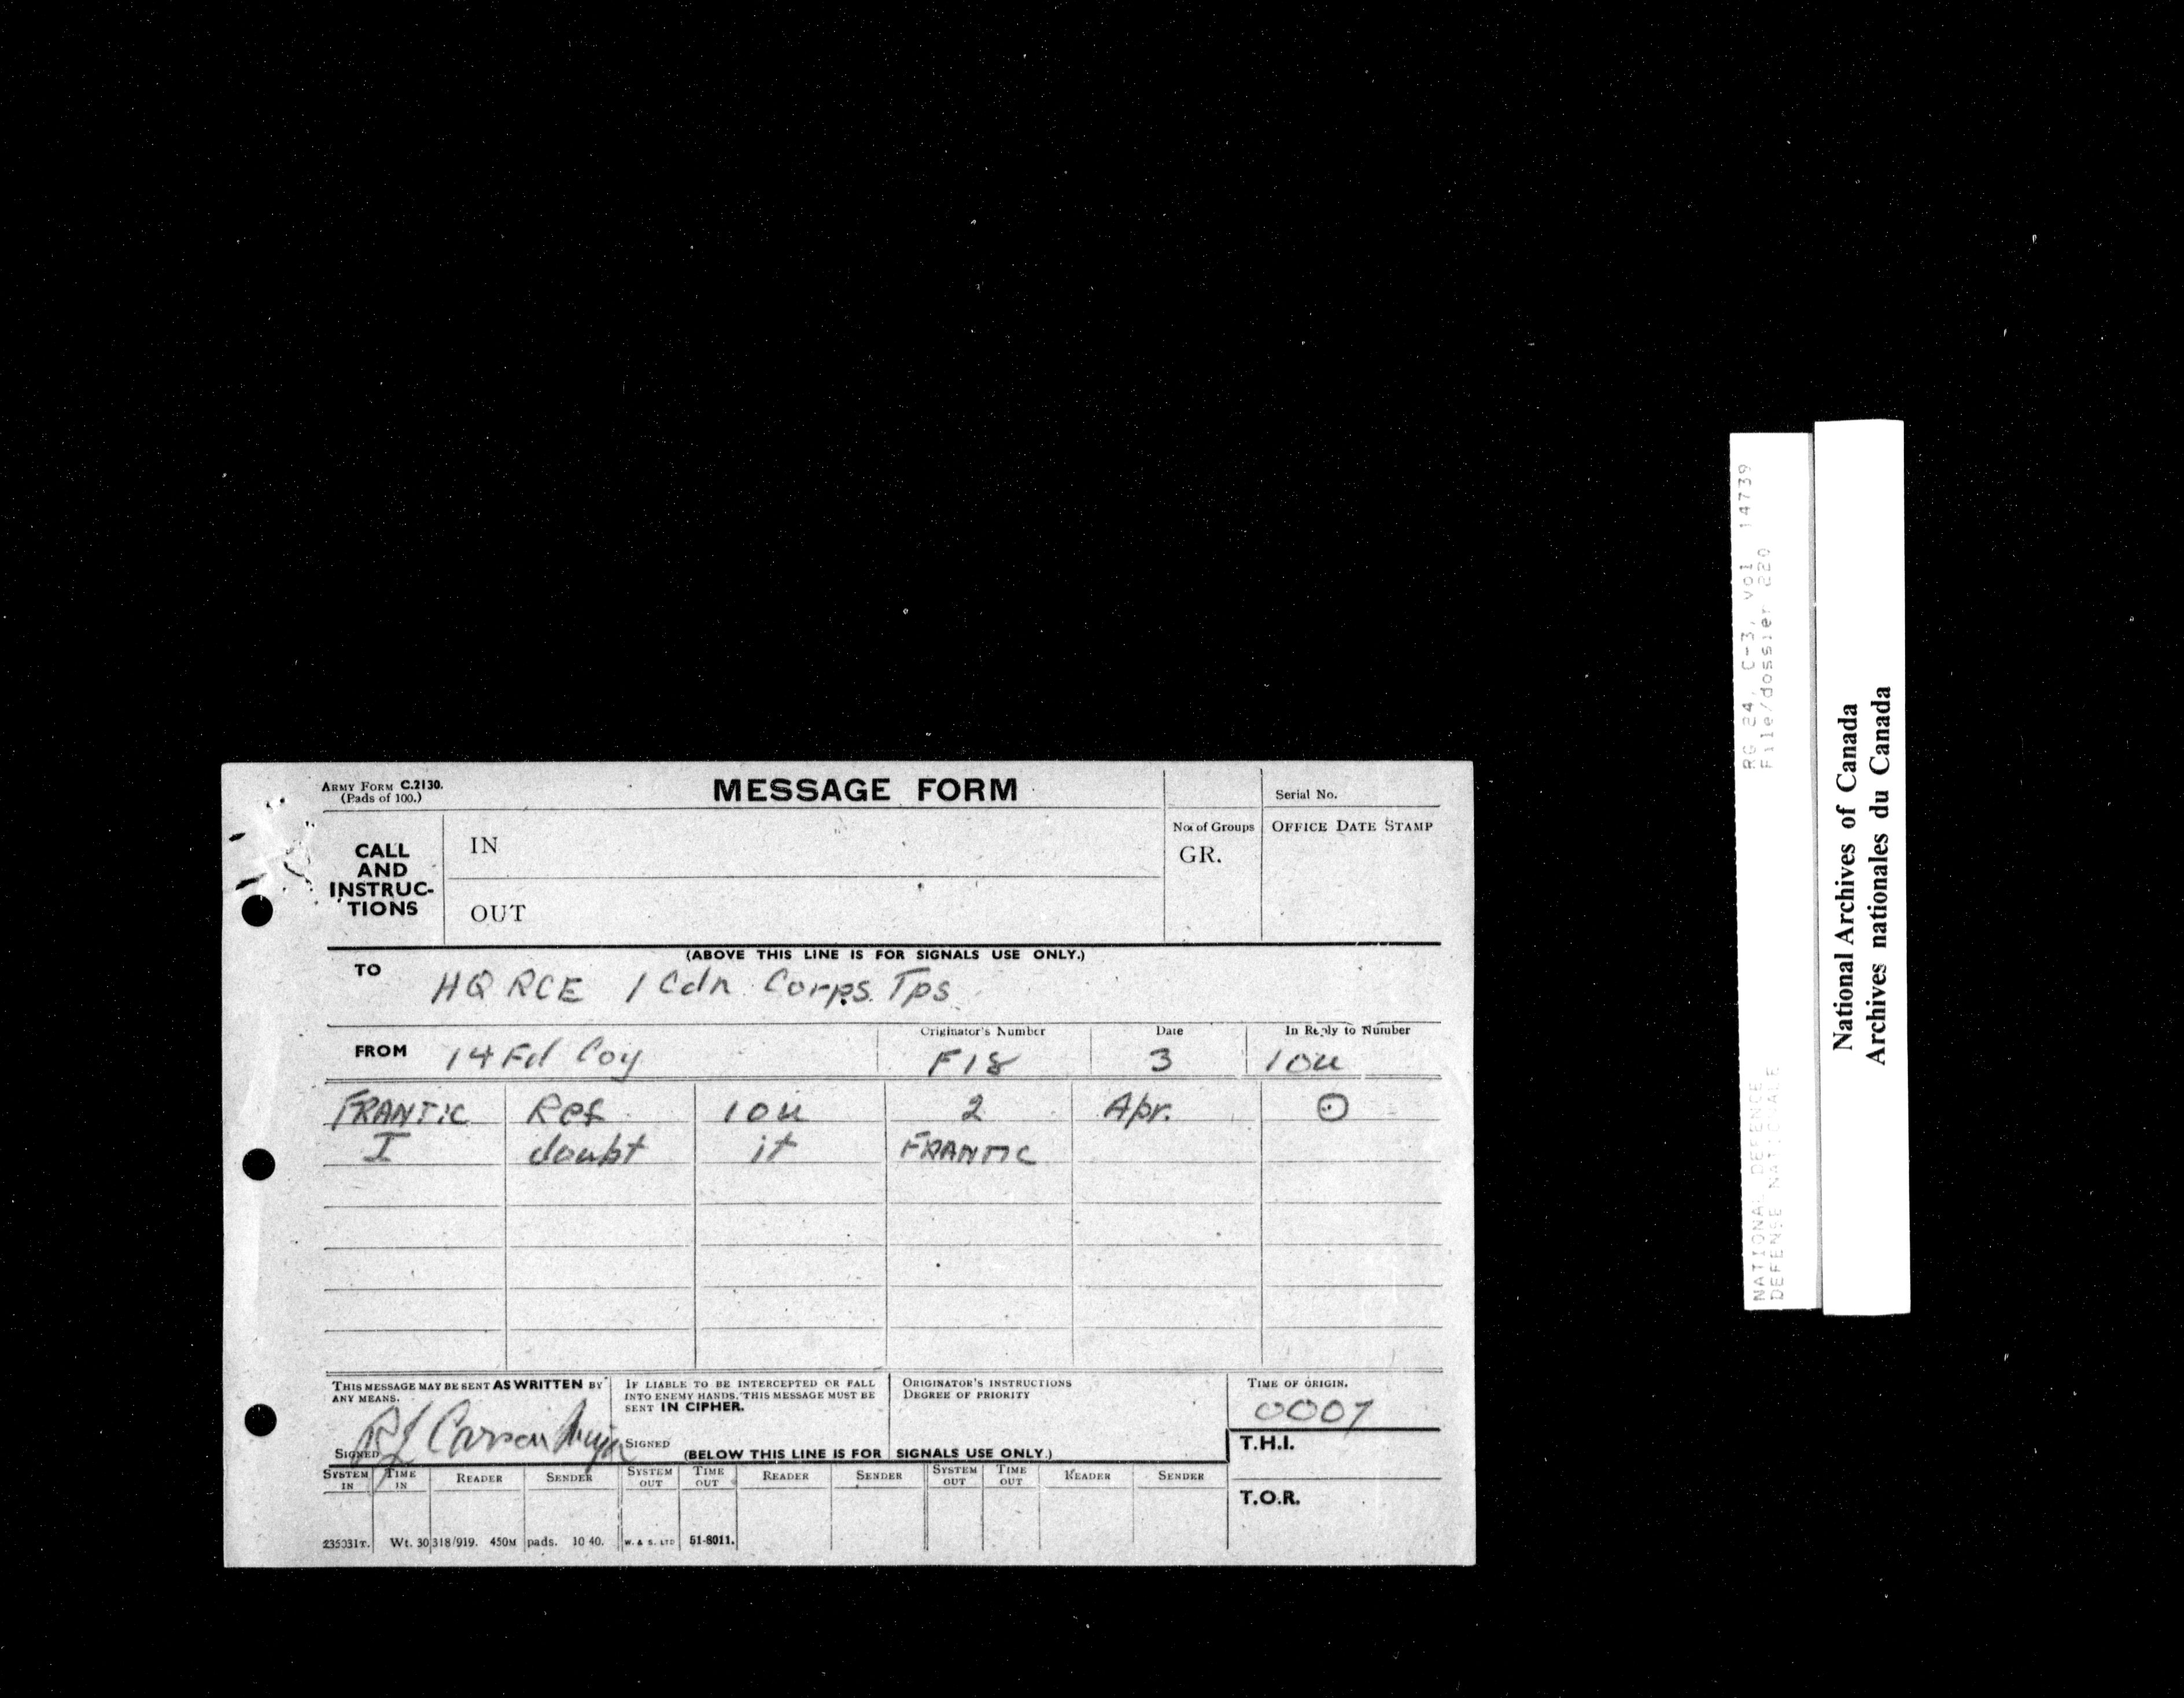 ARMY FORM C.2130.
(Pads of 100.)
MESSAGE FORM
Serial No.
CALL
AND
INSTRUC-
TIONS
IN
OUT
No. of Groups
GR.
OFFICE DATE STAMP
(ABOVE THIS LINE IS FOR SIGNALS USE ONLY.)
TO HQ RCE 1 Cdn Corps Tps
FROM 14 Fd Coy
Originator's Number F18
Date 3
In Reply to Number IOU
FRANTIC Ref IOU 2 Apr. ⊙
I doubt it FRANTIC
THIS MESSAGE MAY BE SENT AS WRITTEN BY
ANY MEANS.
Carson
SIGNED
IF LIABLE TO BE INTERCEPTED OR FALL
INTO ENEMY HANDS, THIS MESSAGE MUST BE
SENT IN CIPHER.
SIGNED
ORIGINATOR'S INSTRUCTIONS
DEGREE OF PRIORITY
TIME OF ORIGIN.
0007
(BELOW THIS LINE IS FOR SIGNALS USE ONLY.)
T.H.I.
T.O.R.
SYSTEM IN TIME IN READER SENDER SYSTEM OUT TIME OUT READER SENDER SYSTEM OUT TIME OUT READER SENDER
235031T. Wt. 30318/919. 450M pads. 10 40. W. & S. LTD 51-8011.
RG 24, C-3, vol 14739
File/dossier 220
NATIONAL DEFENCE
DEFENSE NATIONALE
National Archives of Canada
Archives nationales du Canada